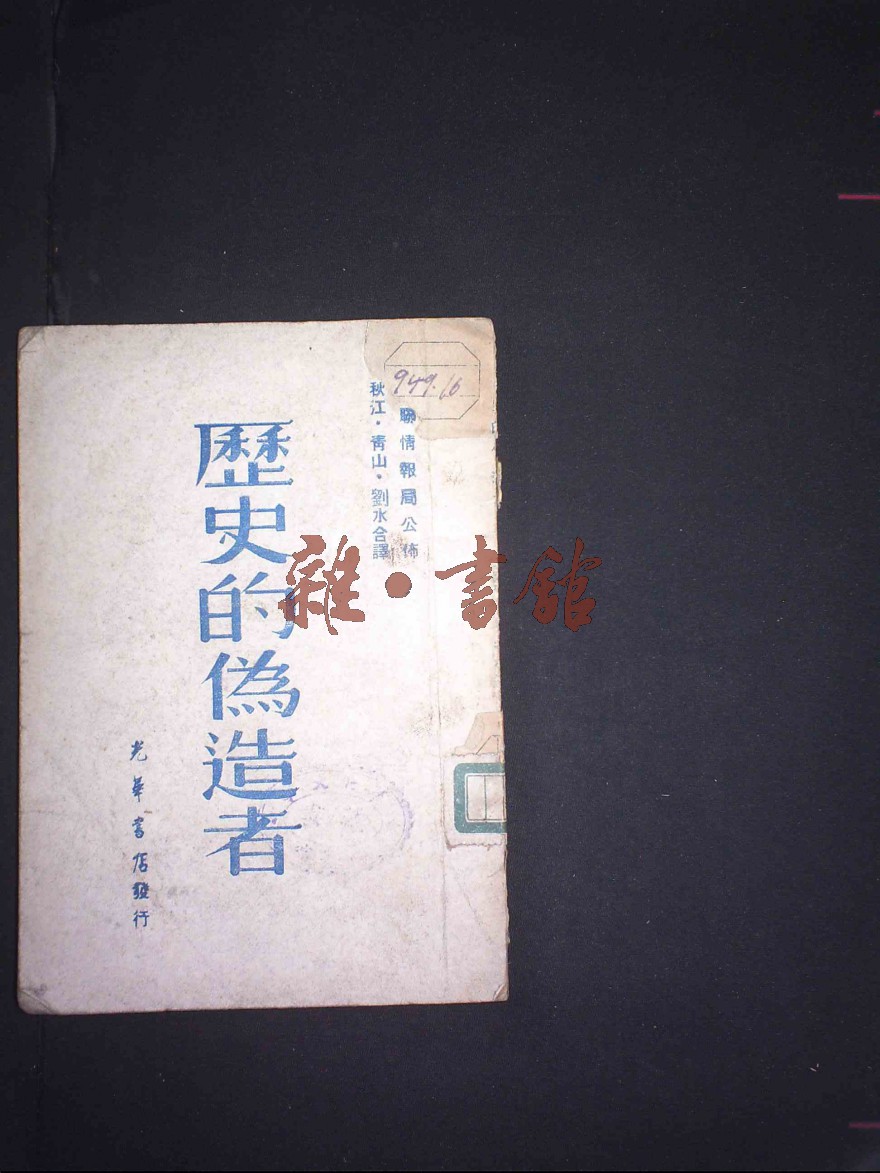 949.16
聯情報局公佈
秋江·青山·劉水合譯
歷史的偽造者
光華書店發行
雜·書館